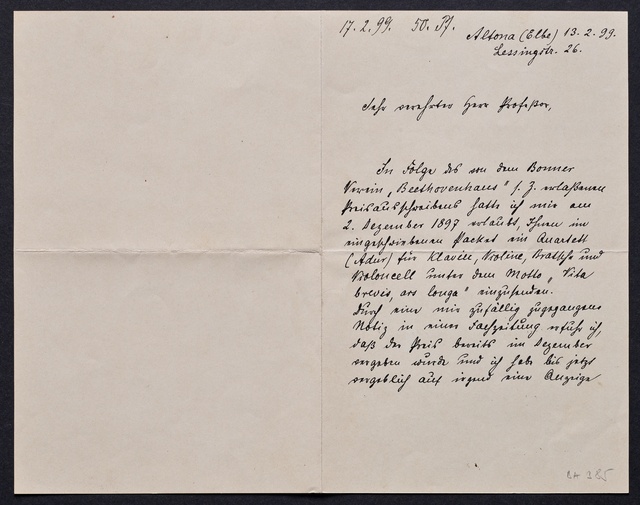 17. 2. 99. 50. Pf.
Altona (Elbe) 13. 2. 99.
Lessingstr. 26.
Sehr verehrter Herr Profeßor,
In Folge des von dem Bonner
Verein „Beethovenhaus" s. Z. erlaßenen
Preisausschreibens hatte ich mir am
2. Dezember 1897 erlaubt, Ihnen im
eingeschriebenen Packet ein Quartett
(Adur) für Klavier, Violine, Bratsche und
Violoncell unter dem Motto „Vita
brevis, ars longa" einzusenden.
Durch eine mir zufällig zugegangene
Notiz in einer Fachzeitung erfuhr ich,
daß der Preis bereits im Dezember
vergeben wurde und ich habe bis jetzt
vergeblich auf irgend eine Anzeige